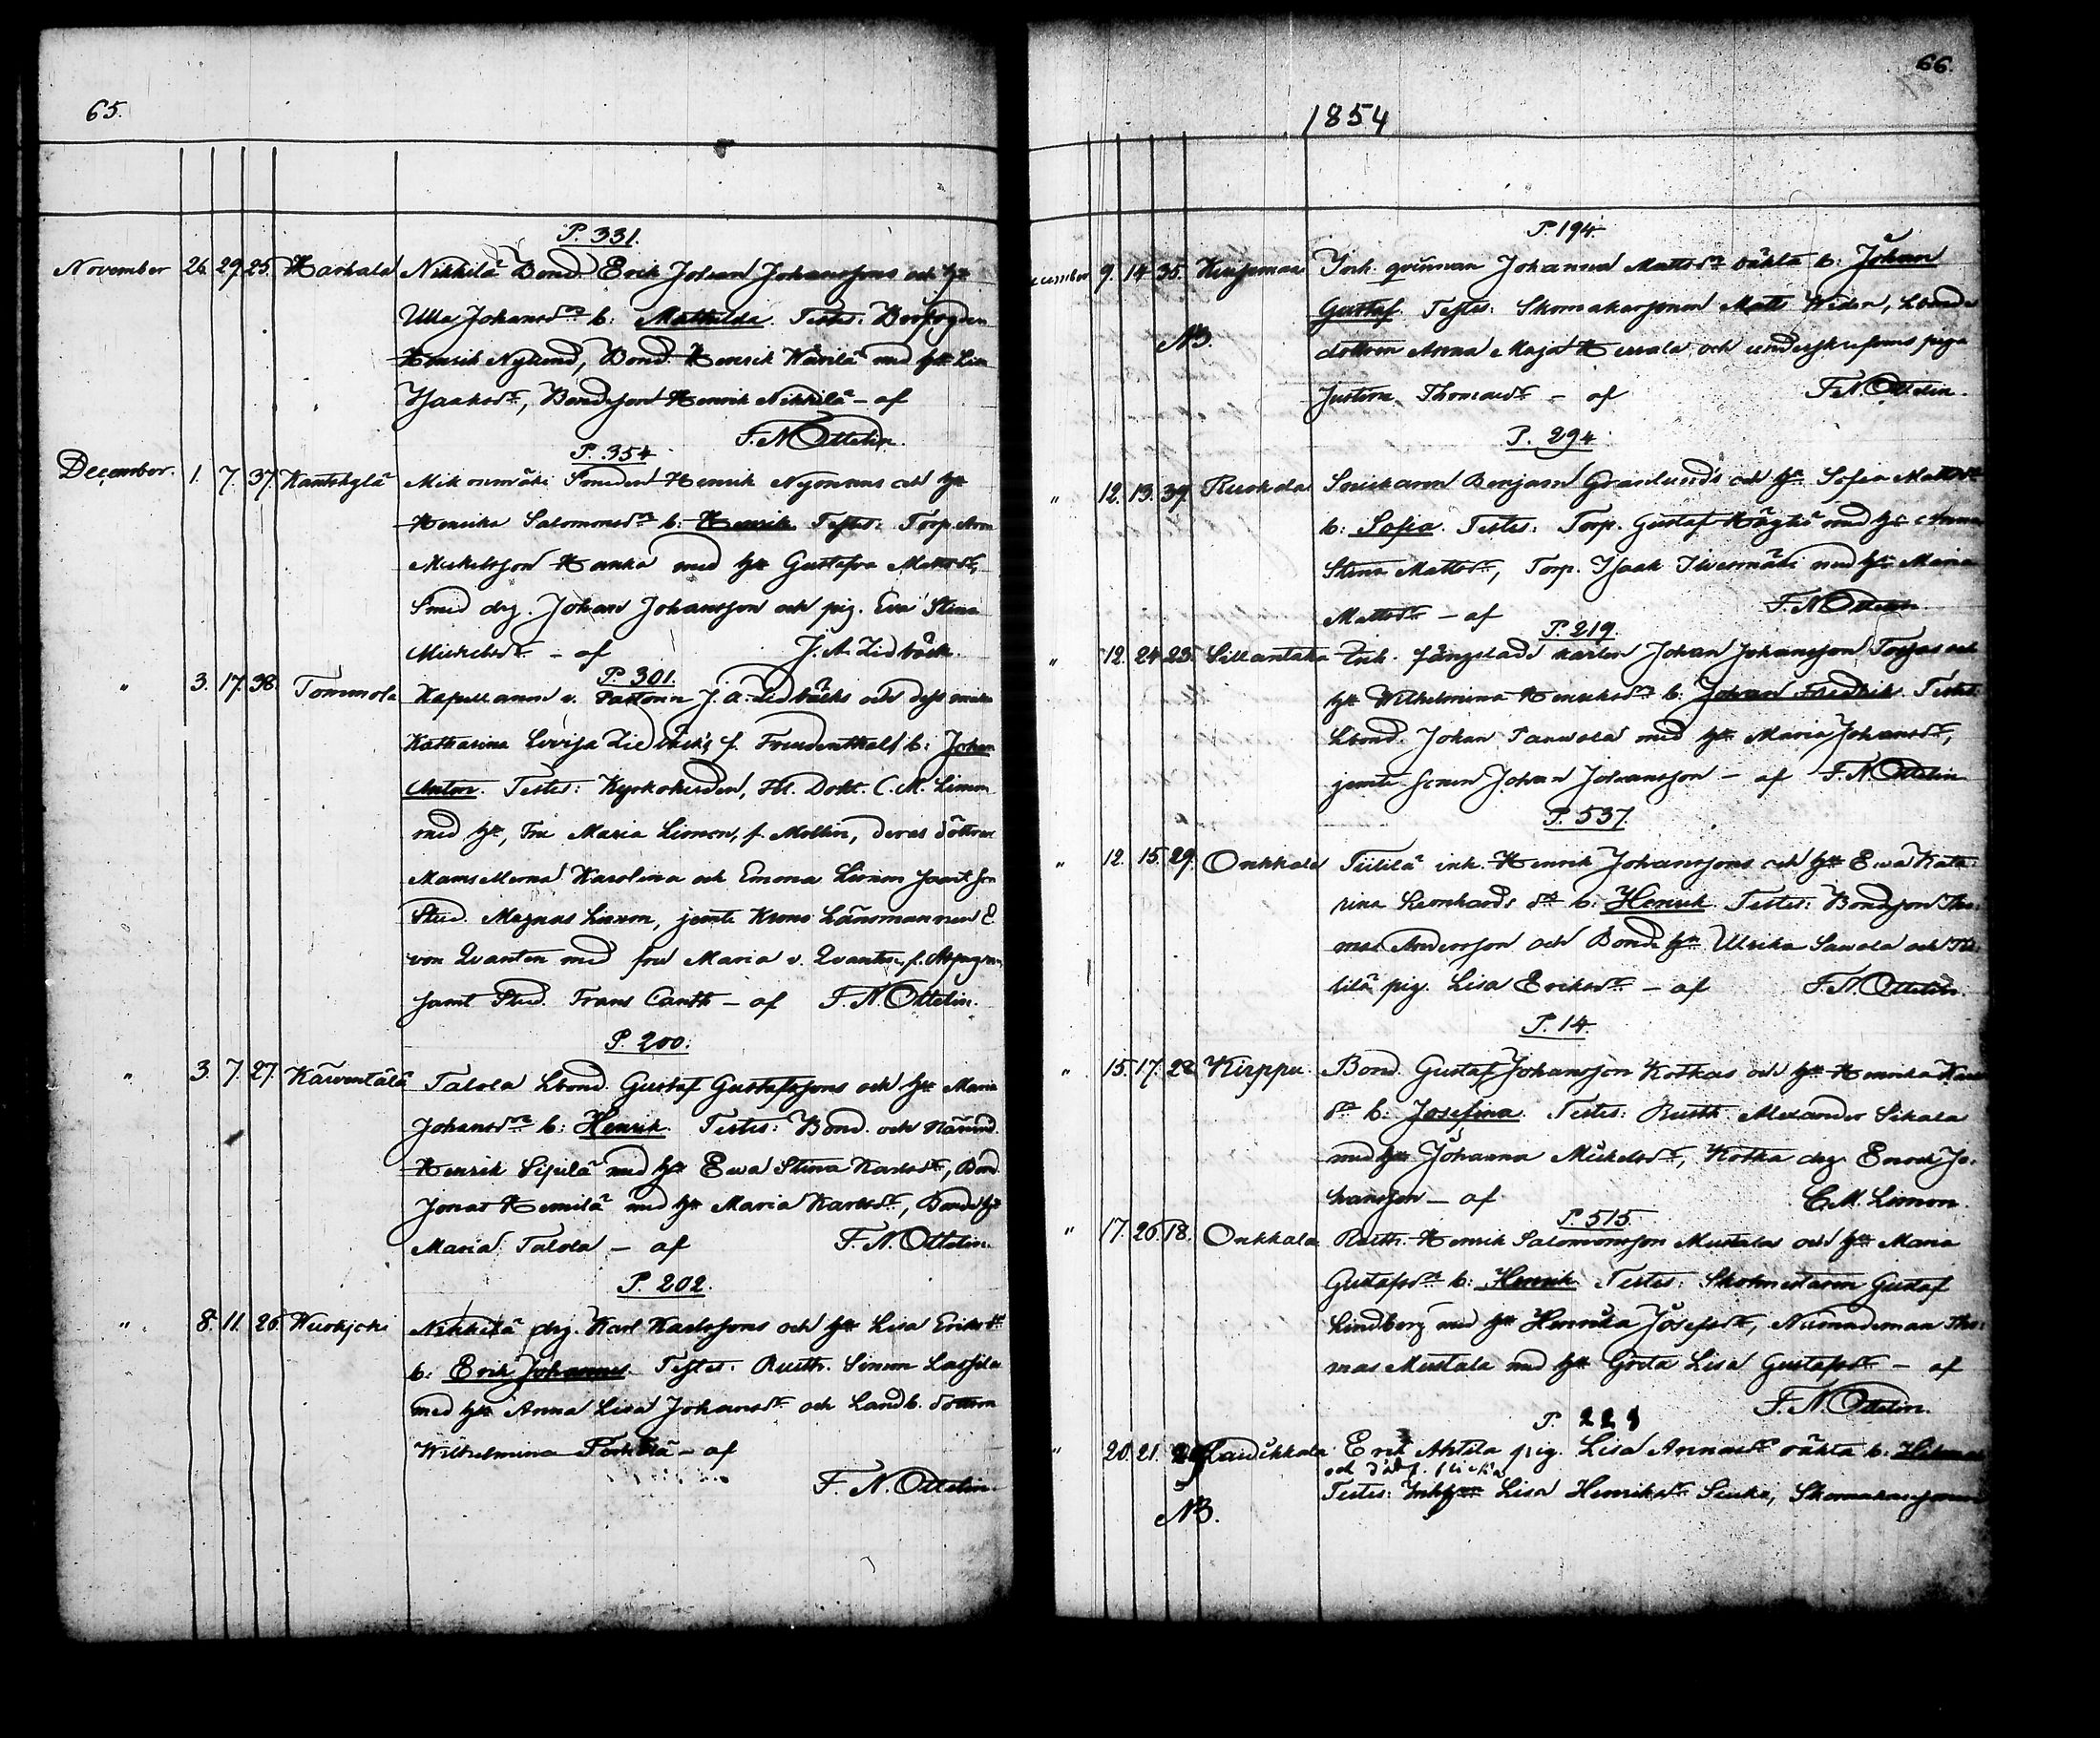 65.
P. 331.
November 26. 29. 25. Harhala Nikkilä Bond. Erik Johan Johanssons och h:u
Ulla Johansd:r b: Mathilda. Testes:
Henrik Nylund, Bond. Henrik Wänilä med h:u Lisa
Isaaksd:r, Bondeson Henrik Nikkilä – af
F. N. Ottelin.
P. 354
December. 1. 7. 37. Kantkylä Smeden Henrik Nymans och h:u
Henrika Salomonsd:r b: Henrik. Testes: Torp. Aron
Mickelsson Hanka med h:u Gustafva Mattsd:r,
Smed drg. Johan Johansson och pig. Eva Stina
Mickelsd:r – af J. A. Lidbäck.
P. 301.
" 3. 17. 38. Tommola Kapellanen v. Pastorn J. A. Lidbäcks och dess maka
Katharina Lovisa Lidbäck's f. Freudenthal, b: Johan
Anton. Testes: Kyrkoherden, Hr. Dokt. C. M. Limon
med h:u, Fru Maria Limon, f. Mollin, deras döttrar
Mamsellerna Karolina och Emma Limon samt son
Stud. Magnus Limon, jemte Krono Länsmannen E.
von Qvanten med fru Maria v. Qvanten, f.
samt Stud. Frans Canth – af F. N. Ottelin.
P. 200.
" 3. 7. 27. Kärventälä Talola Lbond. Gustaf Gustafssons och h:u Maria
Johansd:r b: Henrik. Testes: Bond. och Nämnd.
Henrik Sipilä med h:u Ewa Stina Karlsd:r, Bond.
Jonas Hemilä med h:u Maria Karlsd:r, Bonde h:u
Maria Talola – af F. N. Ottelin.
P. 202.
" 8. 11. 26. Nikkilä drg. Karl Karlssons och h:u Lisa Eriksd:r
b: Erik Johannes. Testes: Rusth. Simon Lassila
med h:u Anna Lisa Johansd:r och Landb. dottren
Wilhelmina – af
F. N. Ottelin.
66.
1854
P. 194.
December 9. 14. 35. Inh. qvinnan Johanna Mattsd:r oäkta b: Johan
Gustaf. Testes: Skomakarsonen Matts Widen, Lbonde
NB. dottren Anna Maja Herrala och underskrifvens piga
Justina Thomasd:r – af F. N. Ottelin.
P. 294
" 12. 13. 39. Ruskola Snickaren Benjam. Granlunds och h:u Sofia Mattsd:r
b: Sofia. Testes: Torp. Gustaf med h:u Anna
Stina Mattsd:r, Torp. Isaak med h:u Maria
Mattsd:r – af F. N. Ottelin.
P. 219.
" 12. 24. 23. Sillantaka Inh. karlen Johan Johansson och
h:u Wilhelmina Henriksd:r b: Johan Fredrik. Testes:
Lbond. Johan Tanvola med h:u Maria Johansd:r,
jemte sonen Johan Johansson – af F. N. Ottelin
P. 537.
" 12. 15. 29. Onkkala Tiililä inh. Henrik Johanssons och h:u Ewa Kata-
rina Leonhards d:r b: Henrik. Testes: Bondeson Tho-
mas Andersson och Bonde h:u Ulrika Sawola och Tii-
lilä pig. Lisa Eriksd:r – af F. N. Ottelin.
P. 14.
" 15. 17. 22. Kirppu Bond. Gustaf Johansson Kotkas och h:u Henrika
d:r b: Josefina. Testes: Rusth. Alexander Sikala
med h:u Johanna Mickelsd:r, Kotka drg. Enock Jo-
hansson – af C. M. Limon.
P. 515.
" 17. 26. 18. Onkkala Rusth. Henrik Salomonsson Mustalas och h:u Maria
Gustafsd:r b: Henrik. Testes: Skolmestaren Gustaf
Lindberg med h:u Henrika Josefsd:r, Nämndeman Tho-
mas Mustala med h:u Greta Lisa Gustafsd:r – af
F. N. Ottelin.
P. 228
" 20. 21. Erik Ahtila pig. Lisa Annasd:r oäkta b:
och dödf. flicka
NB. Testes: Lisa Henriksd:r, Skomakaresonen